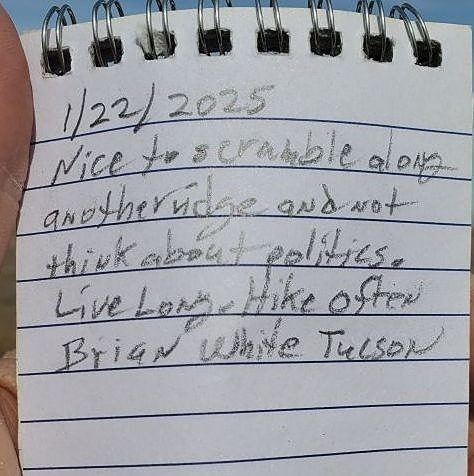 1/22/2025
Nice to scramble along
another ridge and not
think about politics.
Live Long. Hike Often
Brian White Tucson